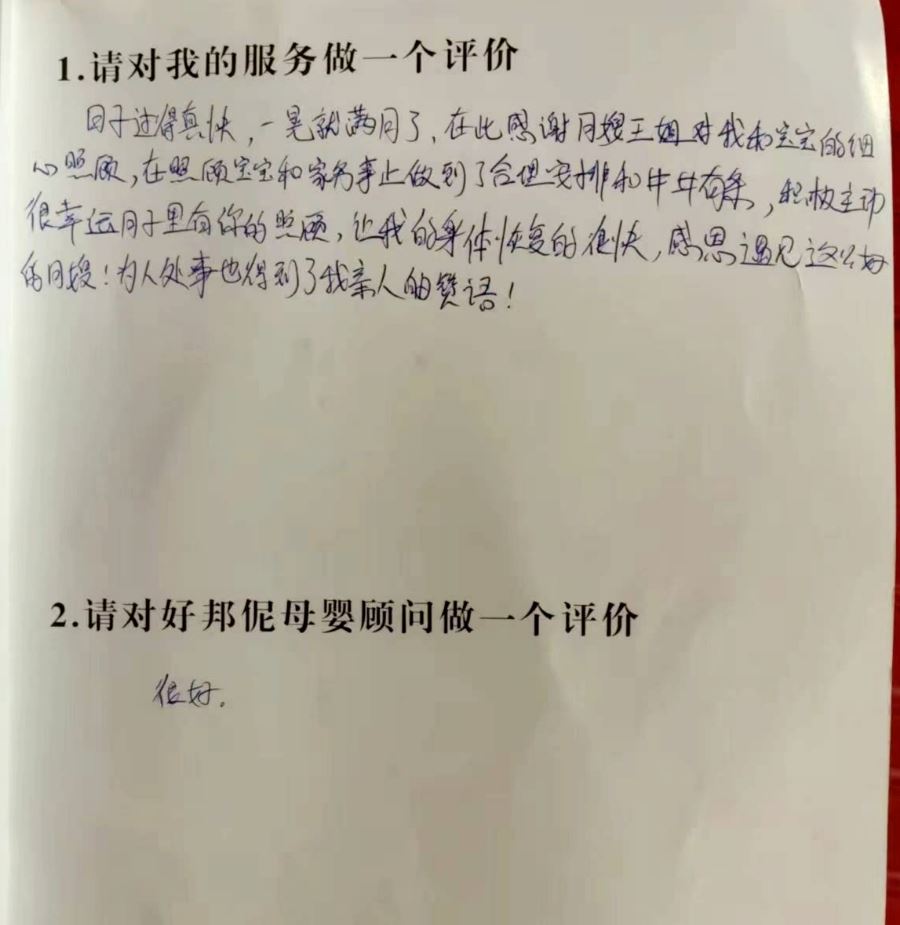 1.请对我的服务做一个评价
日子过得真快，一晃就满月了，在此感谢月嫂王姐对我和宝宝的细
心照顾，在照顾宝宝和家务事上做到了合理安排和井井有条，积极主动
很幸运月子里有你的照顾，让我的身体恢复的很快，感恩遇见这么好
的月嫂！为人处事也得到了我亲人的赞语！
2.请对好邦伲母婴顾问做一个评价
很好.